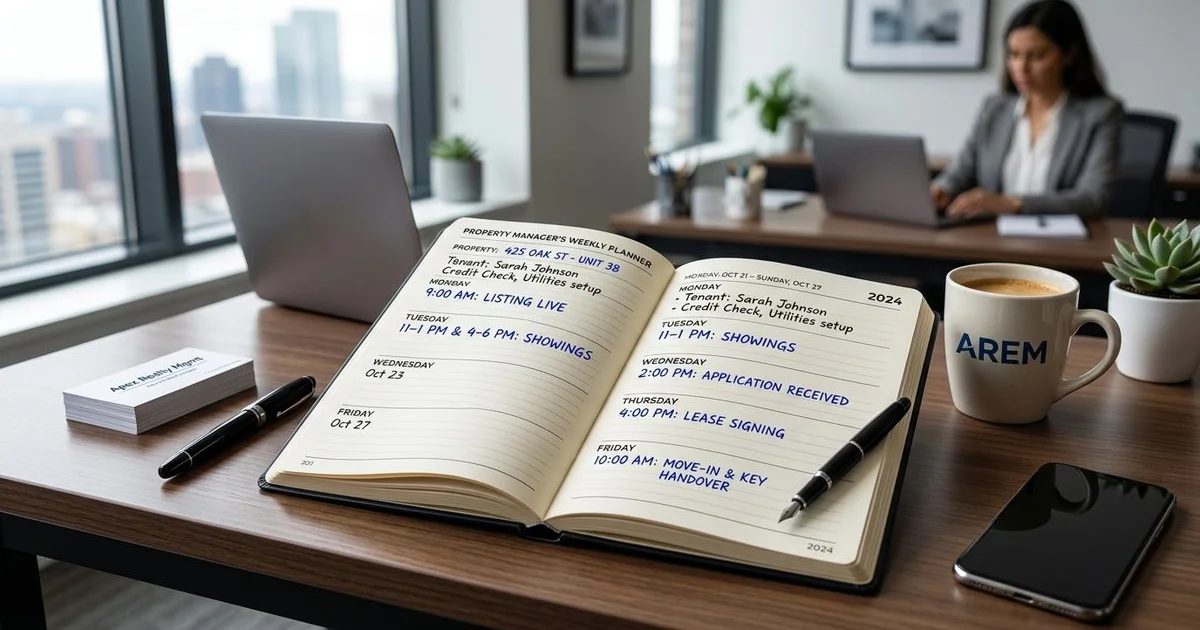 PROPERTY MANAGER'S WEEKLY PLANNER
PROPERTY: 425 OAK ST - UNIT 3B
Tenant: Sarah Johnson
Credit Check, Utilities setup
MONDAY
9:00 AM: LISTING LIVE
TUESDAY
11-1 PM & 4-6 PM: SHOWINGS
WEDNESDAY
Oct 23
FRIDAY
Oct 27
MONDAY, OCT 21 - SUNDAY, OCT 27
2024
MONDAY
- Tenant: Sarah Johnson
- Credit Check, Utilities setup
TUESDAY
11-1 PM: SHOWINGS
WEDNESDAY
2:00 PM: APPLICATION RECEIVED
THURSDAY
4:00 PM: LEASE SIGNING
FRIDAY
10:00 AM: MOVE-IN & KEY
HANDOVER
2024
Apex Realty Mgmt
AREM